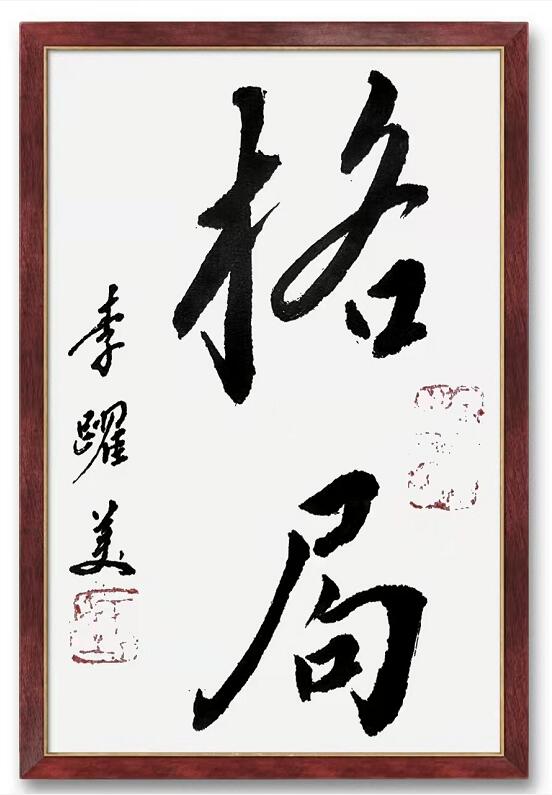 格局
李躍美